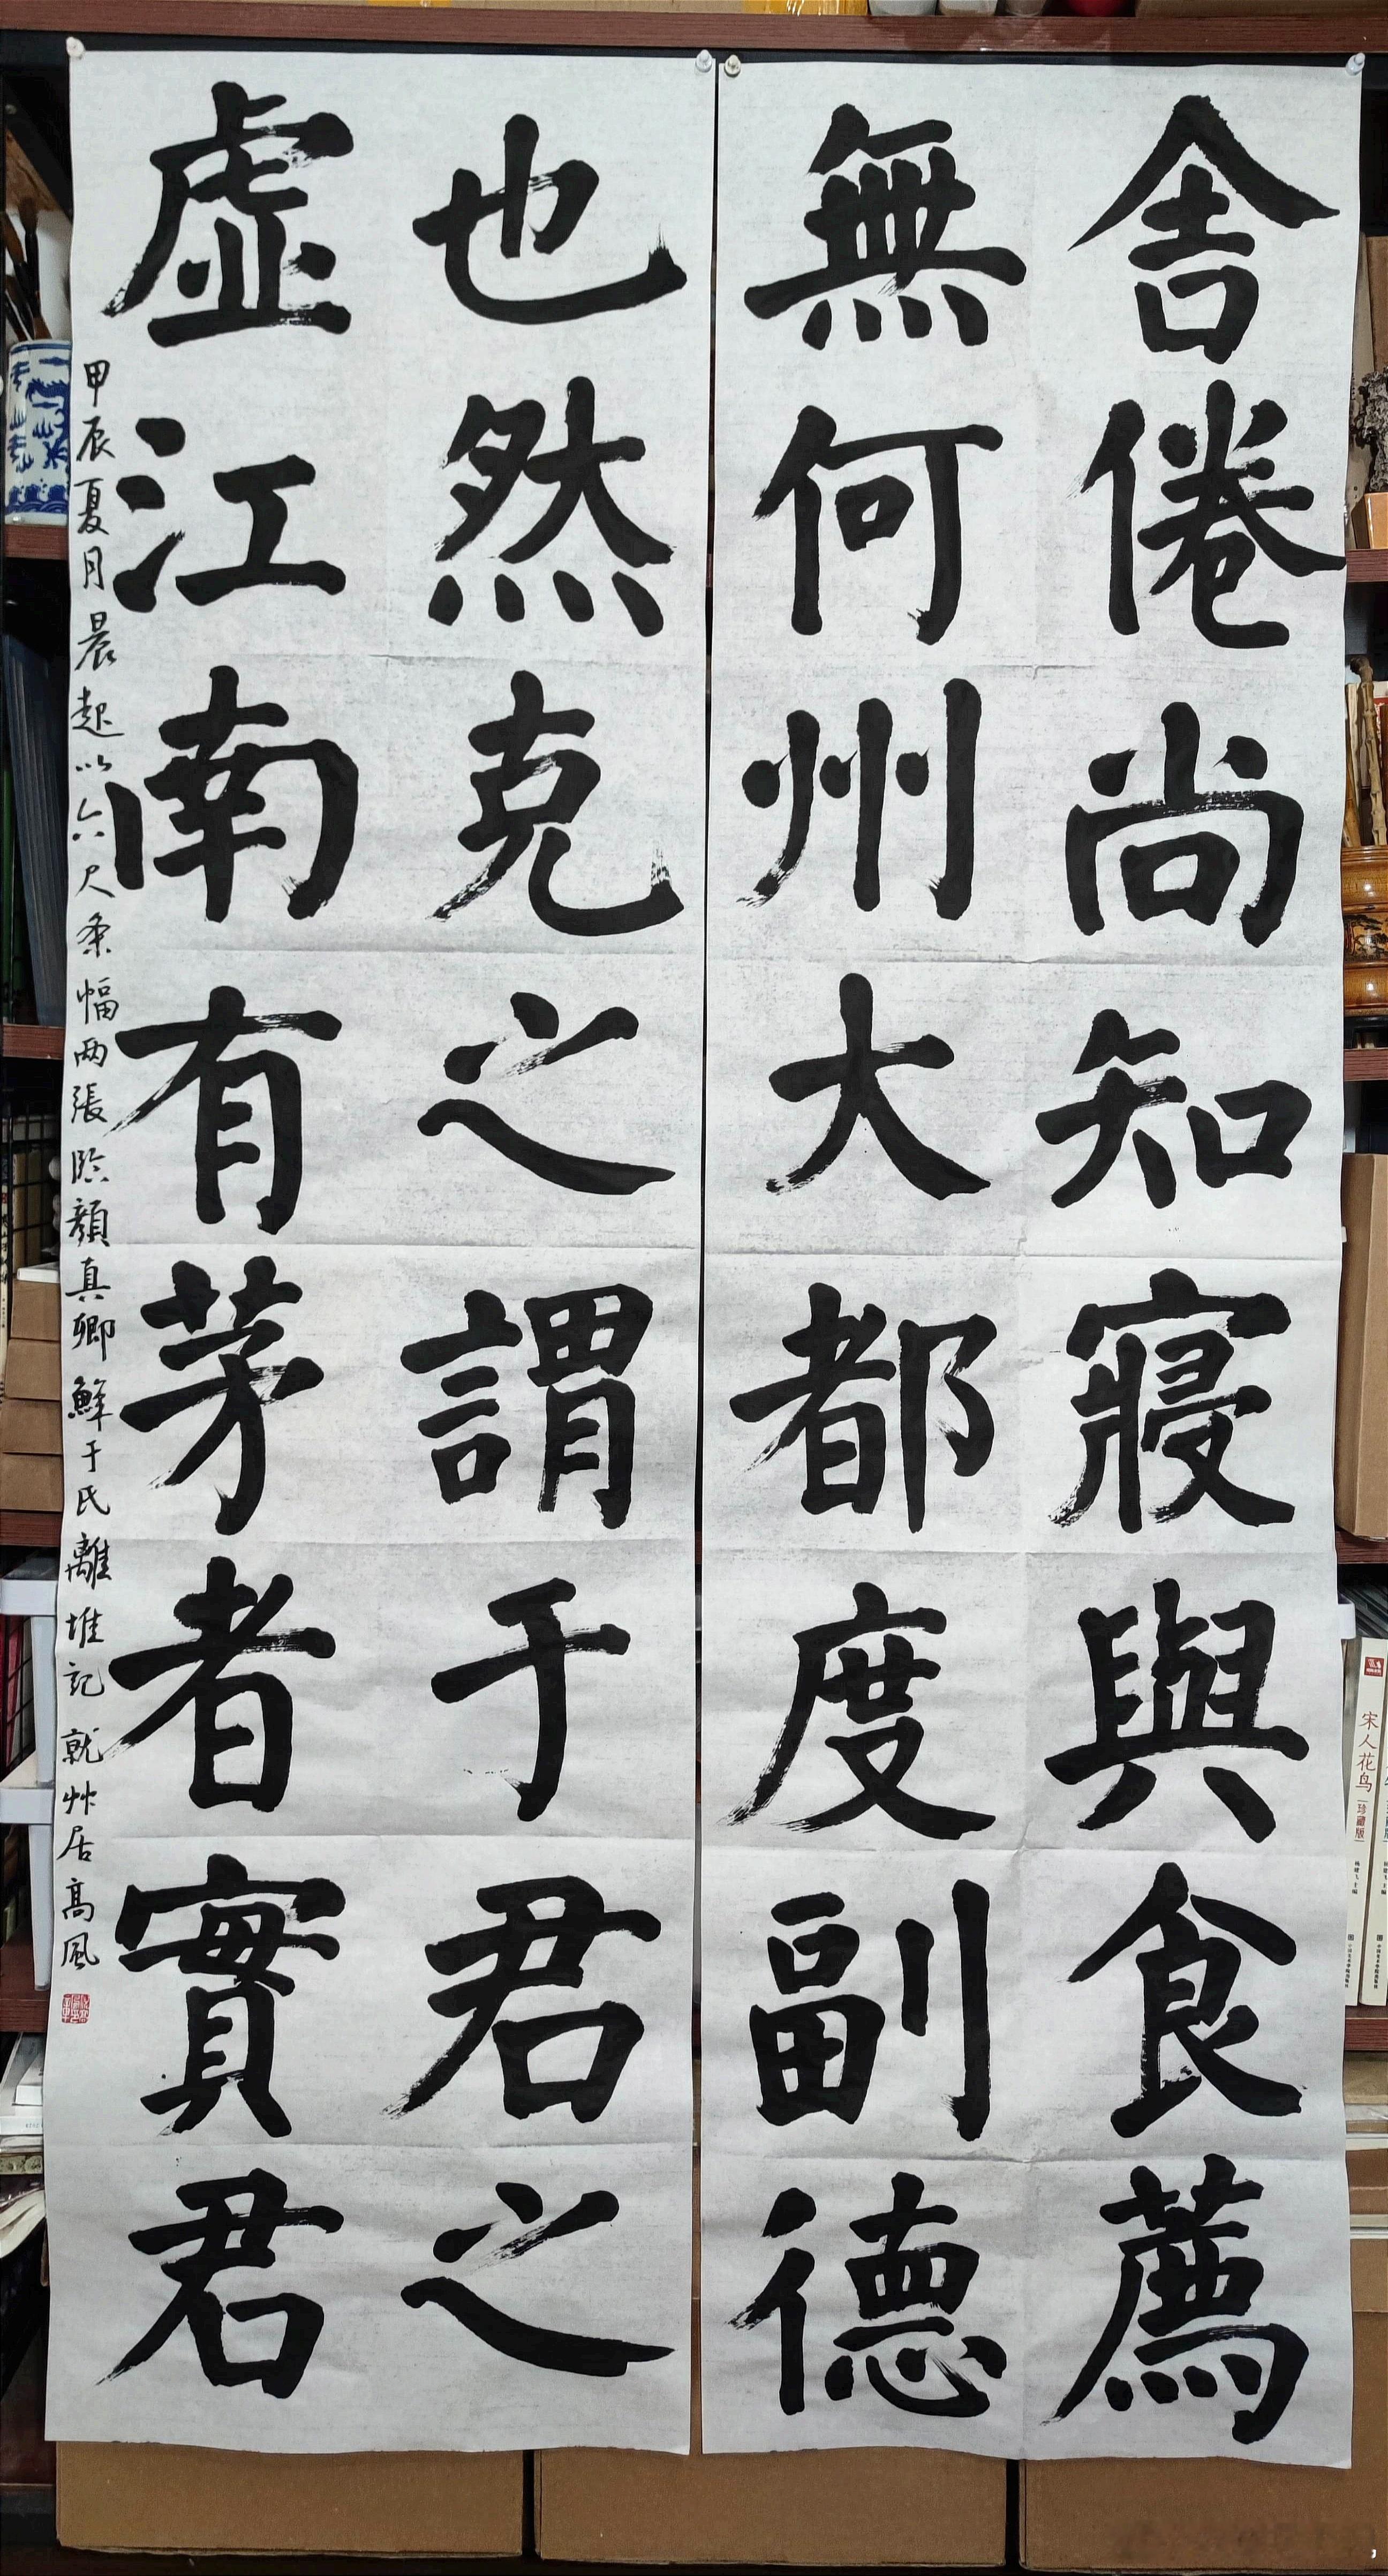 舍倦尚知寢與食薦
無何州大都度副德
也然克之謂于君之
虛江南有茅者實君
甲辰夏月晨起以六尺条幅两張臨顏真卿鮮于氏離堆記 就艸居高風
宋人花鸟
珍藏版